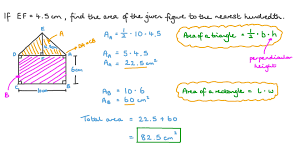 If EF = 4.5cm, find the area of the given figure to the nearest hundredth.
E
A
F
D
B
6cm
C
A_A = ½ · 10 · 4.5
A_A = 5 · 4.5
A_A = 22.5 cm²
Area of a triangle = ½ · b · h
perpendicular
height
A_B = 10 · 6
A_B = 60 cm²
Area of a rectangle = L · w
Total area = 22.5 + 60
= 82.5 cm²